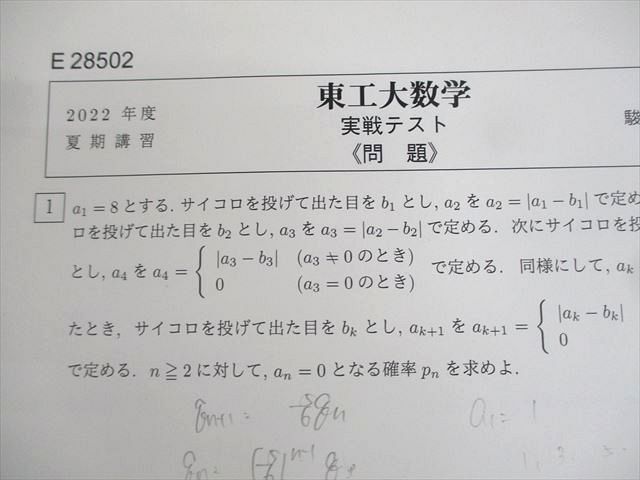 E 28502
2022 年度
夏期講習
東工大数学
実戦テスト
《問 題》
駿
1 a₁ = 8 とする. サイコロを投げて出た目を b₁ とし, a₂ を a₂ = |a₁ − b₁| で定め
ロを投げて出た目を b₂ とし, a₃ を a₃ = |a₂ − b₂| で定める. 次にサイコロを投
とし, a₄ を a₄ = { |a₃ − b₃| (a₃ ≠ 0 のとき) で定める. 同様にして, aₖ
0 (a₃ = 0 のとき)
たとき, サイコロを投げて出た目を bₖ とし, aₖ₊₁ を aₖ₊₁ = { |aₖ − bₖ|
0
で定める. n ≧ 2 に対して, aₙ = 0 となる確率 pₙ を求めよ.
qₙ₊₁ = 5/6 qₙ
a₁ = 1